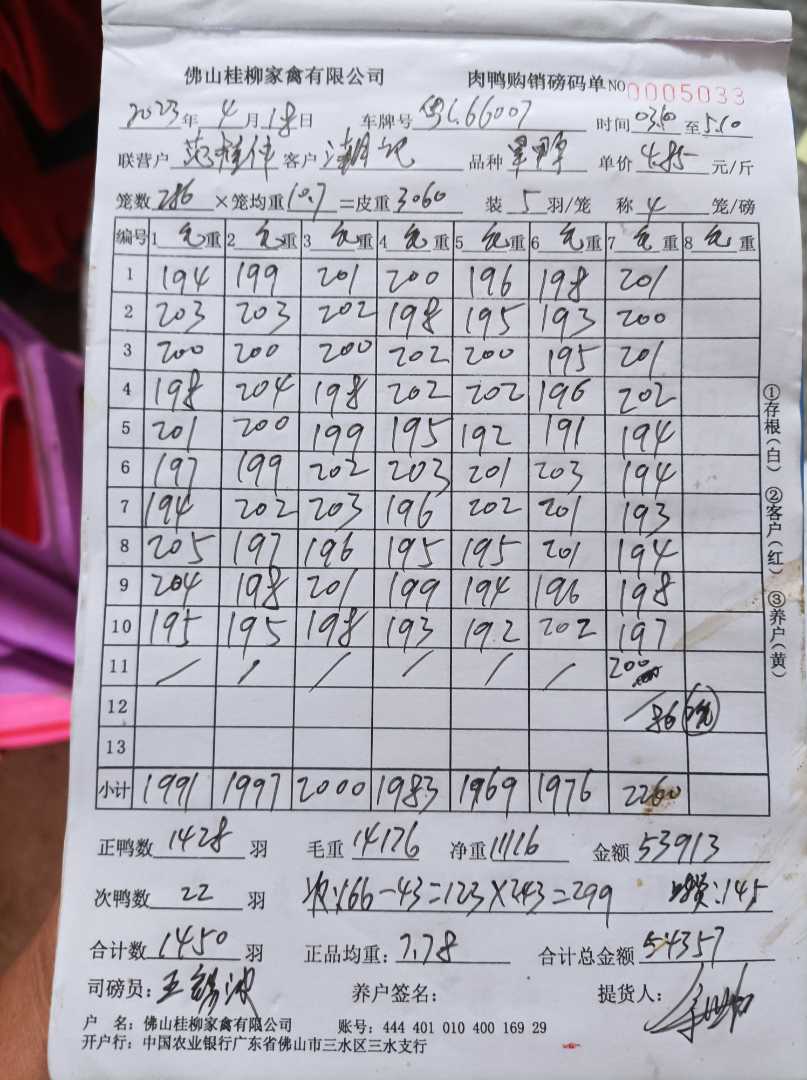 佛山桂柳家禽有限公司 肉鸭购销磅码单 NO 0005033
2023年4月18日 车牌号 粤L66007 时间 03:10 至 5:10
联营户 客户 品种 单价 4.85 元/斤
笼数 286 ×笼均重 10.7 =皮重 3060 装 5 羽/笼 称 4 笼/磅
编号 1 毛重 2 毛重 3 毛重 4 毛重 5 毛重 6 毛重 7 毛重 8 毛重
1 194 199 201 200 196 198 201
2 203 203 202 198 195 193 200
3 200 200 200 202 200 195 201
4 198 204 198 202 202 196 202
5 201 200 199 195 192 191 194
6 197 199 202 203 201 203 194
7 194 202 203 196 202 201 193
8 205 197 196 195 195 201 194
9 204 198 201 199 194 196 198
10 195 195 198 193 192 202 197
11 / / / / / / 200
12 /86
13
小计 1991 1997 2000 1983 1969 1976 2260
①存根(白) ②客户(红) ③养户(黄)
正鸭数 1428 羽 毛重 14176 净重 11116 金额 53913
次鸭数 22 羽 次:166-43=123×243=299 :145
合计数 1450 羽 正品均重: 7.78 合计总金额 54357
司磅员: 王锡波 养户签名: 提货人:
户 名: 佛山桂柳家禽有限公司 账号: 444 401 010 400 169 29
开户行: 中国农业银行广东省佛山市三水区三水支行